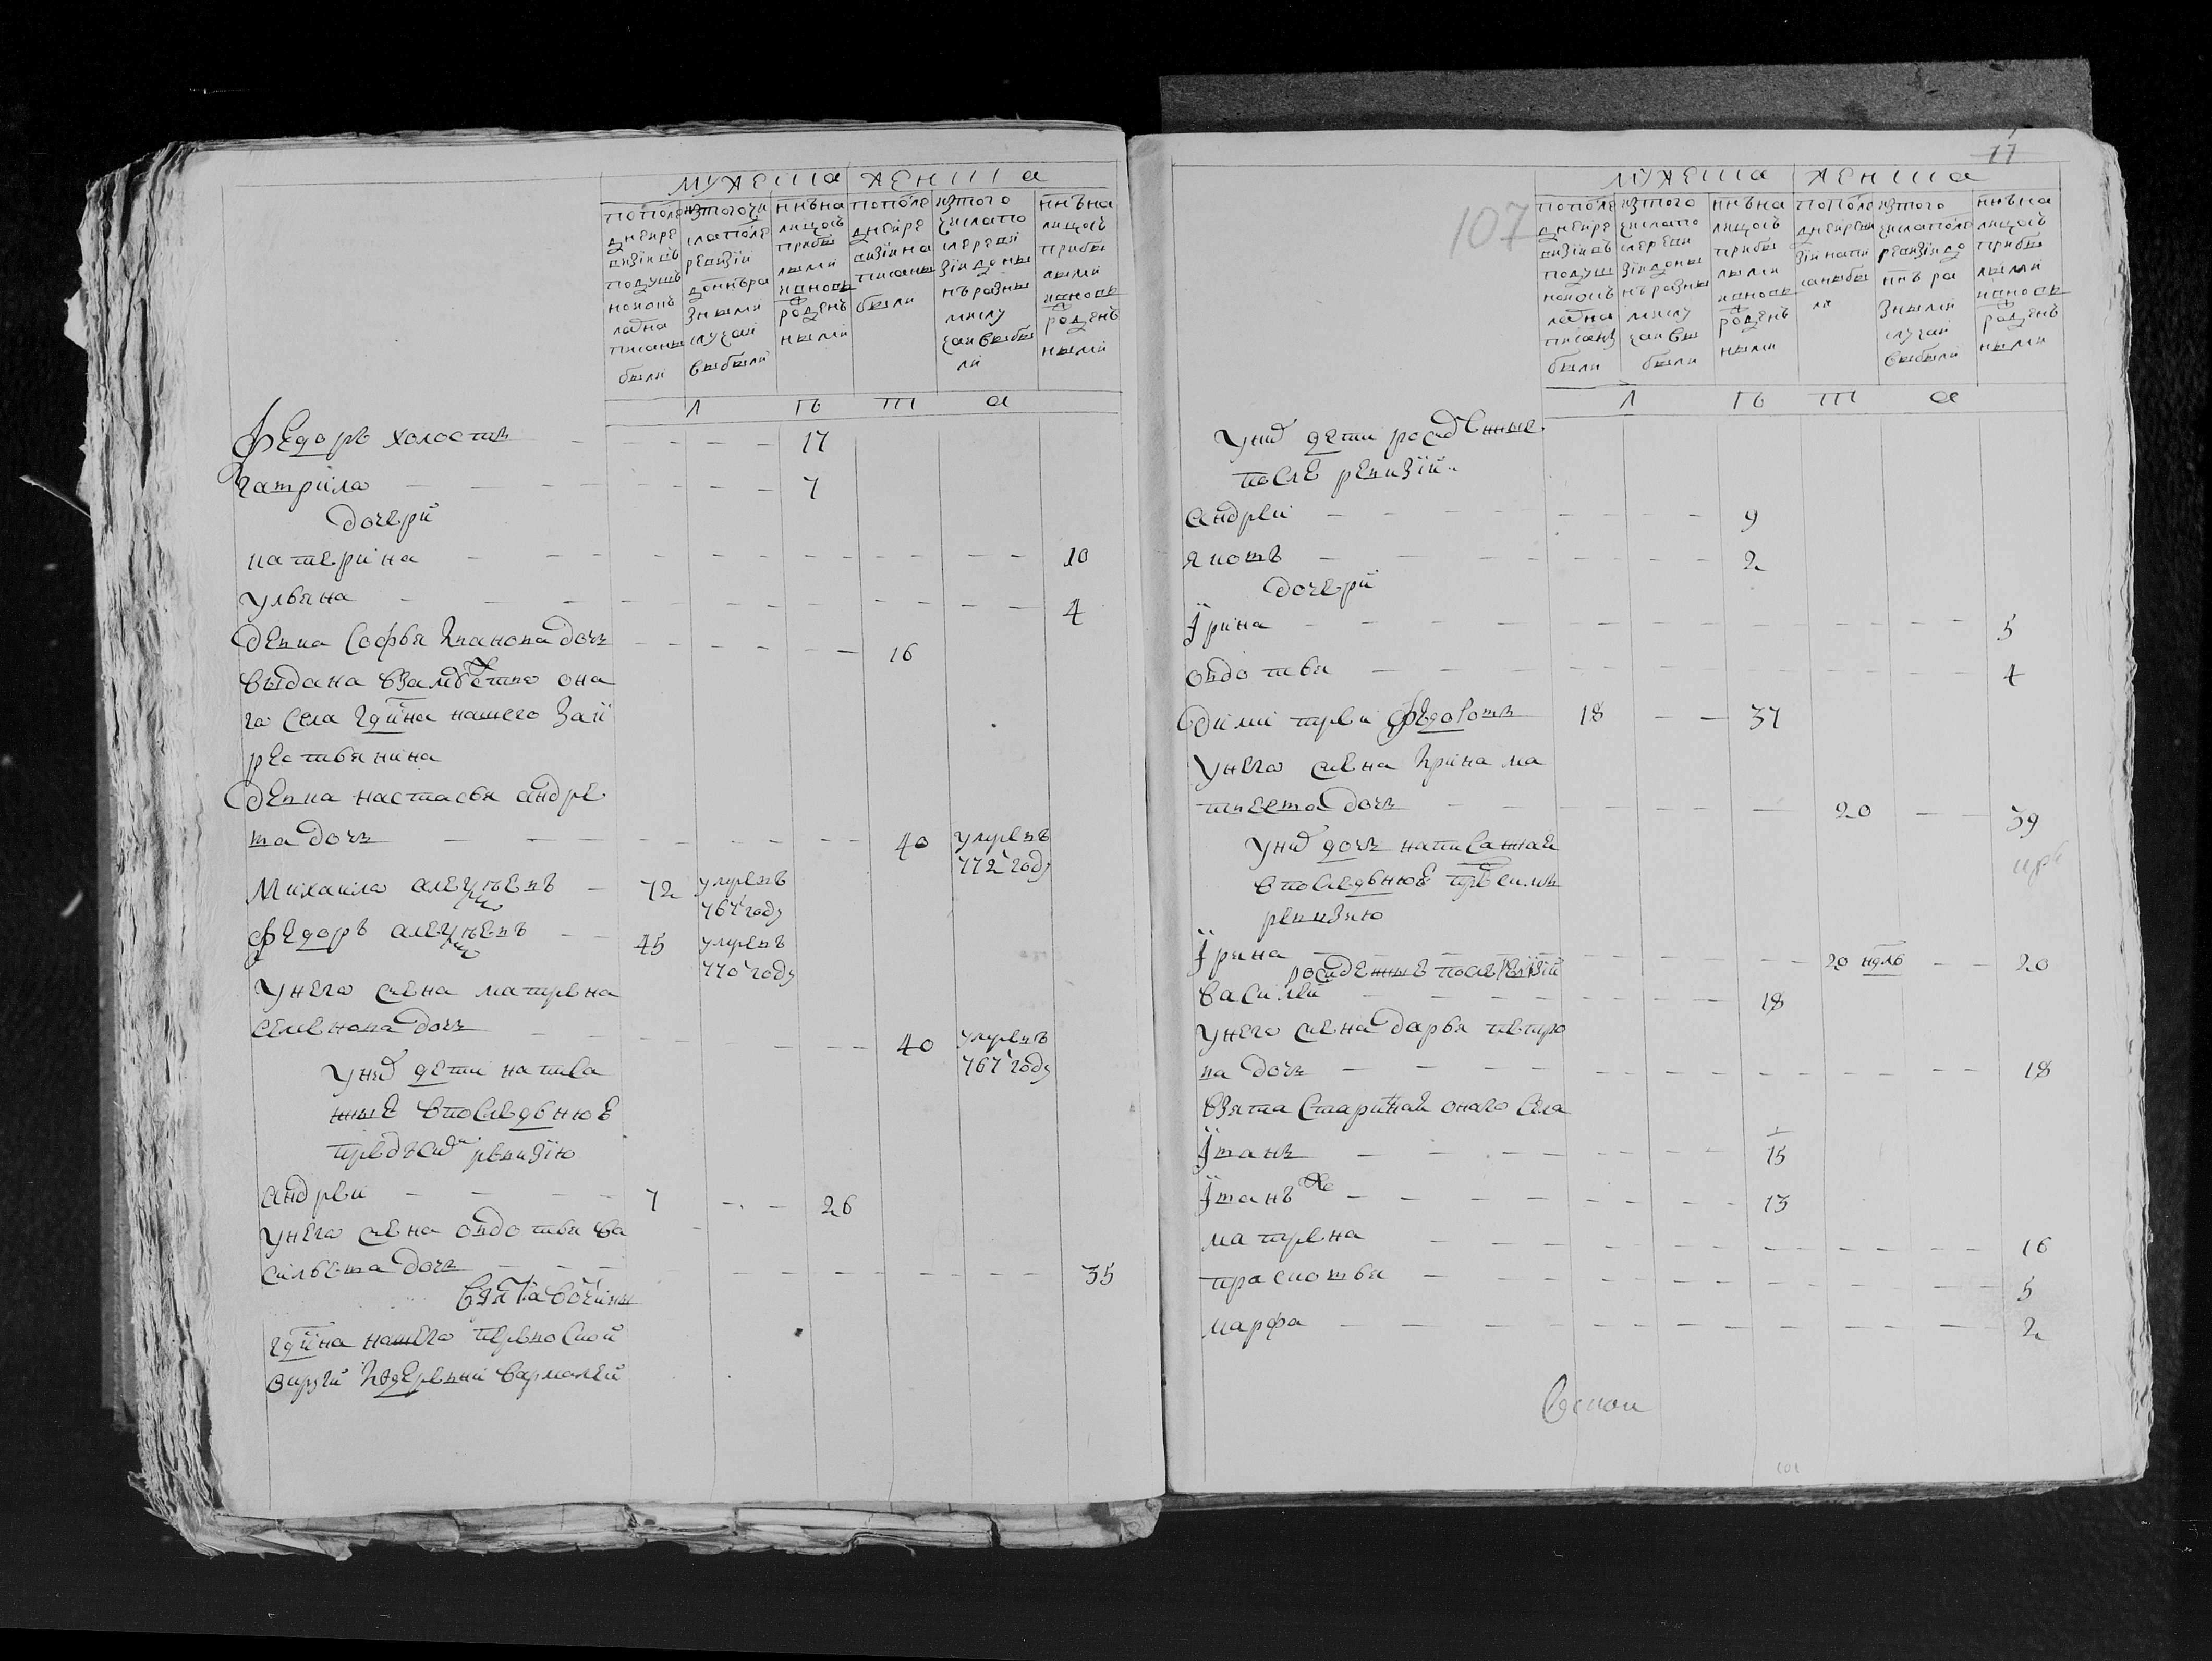 мужеска женска
пополе
днейре
визіивъ
подушъ
номонъ
ладна
писаны
были
изтогочи
слаполе
ревизіи
доннѣра
зными
случаи
выбыли
ннѣна
лицось
прибы
лыми
и новь
рожден
ными
пополе
днейре
визіина
писаны
были
изтого
числапо
слереви
зіидоны
нѣразны
мислу
чаивыбы
ли
ннѣна
лицось
прибы
лыми
и новь
рожден
ными
л ѣ т а
Федоръ холостъ 17
Гаврила 7
дочери
катерина 10
ульяна 4
девка Софья Иванова дочь 16
выдана взамужество она
го села гдина нашего за к
рестьянина
девка настасья андре
ва дочь 40 умре въ
772 году
Михаила алеѯѣевъ 72 умре въ
767 году
Федоръ алеѯѣевъ 45 умре въ
770 году
унего жена матрена
семенова дочь 40 умре въ
767 году
унихъ дети написа
нные впоследьнюю
предъ сим ревизию
андреи 7 26
унего жена овдотья ва
сильева дочь 35
взята вочины
гдина нашего
округи деревни

11
107
мужеска женска
пополе
днейре
визіивъ
подуш
номонъ
ладна
писаны
были
изтого
числапо
слереви
зіидоны
нѣразны
мислу
чаивы
были
ннѣна
лицось
прибы
лыми
и новь
рожден
ными
пополе
днейреви
зіинапи
саныбы
ли
изтого
числаполе
ревизіидо
ннѣ ра
зными
случаи
выбыли
ннѣна
лицось
прибы
лыми
и новь
рожден
ными
л ѣ т а
унихъ дети рожденные
после ревизіи
андреи 9
яковъ 2
дочери
Ірина 5
овдотья 4
димитреи Федоровъ 18 37
унего жена Ирина ма
твеева дочь 20 39
унихъ дочь написанная
впоследьнюю пред сим
ревизию
Ірина 20 ндль 20
рожденные после ревизіи
василеи 18
унего жена дарья петро
ва дочь 18
взята старинная онаго села
Іванъ 15
Іванъ же 13
матрена 16
прасковья 5
марфа 2